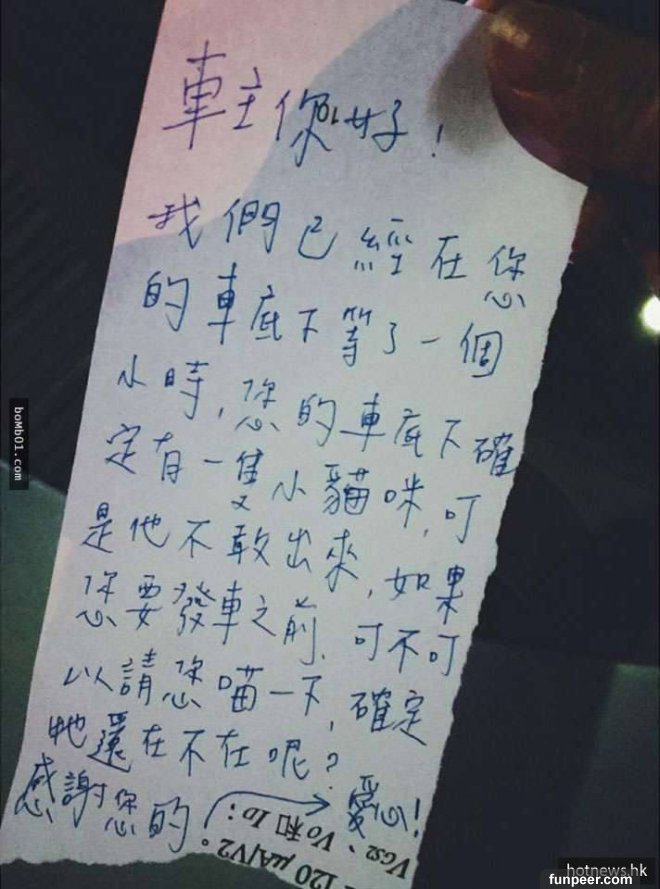 車主你好!
我們已經在您
的車底下等了一個
小時,您的車底下確
定有一隻小貓咪,可
是他不敢出來,如果
您要發車之前,可不可
以請您喵一下,確定
牠還在不在呢?
感謝您的愛心!
VGS2、VO 和 IO:
= 120 μA/V2。
boMb01.com
hotnews.hk
funpeer.com